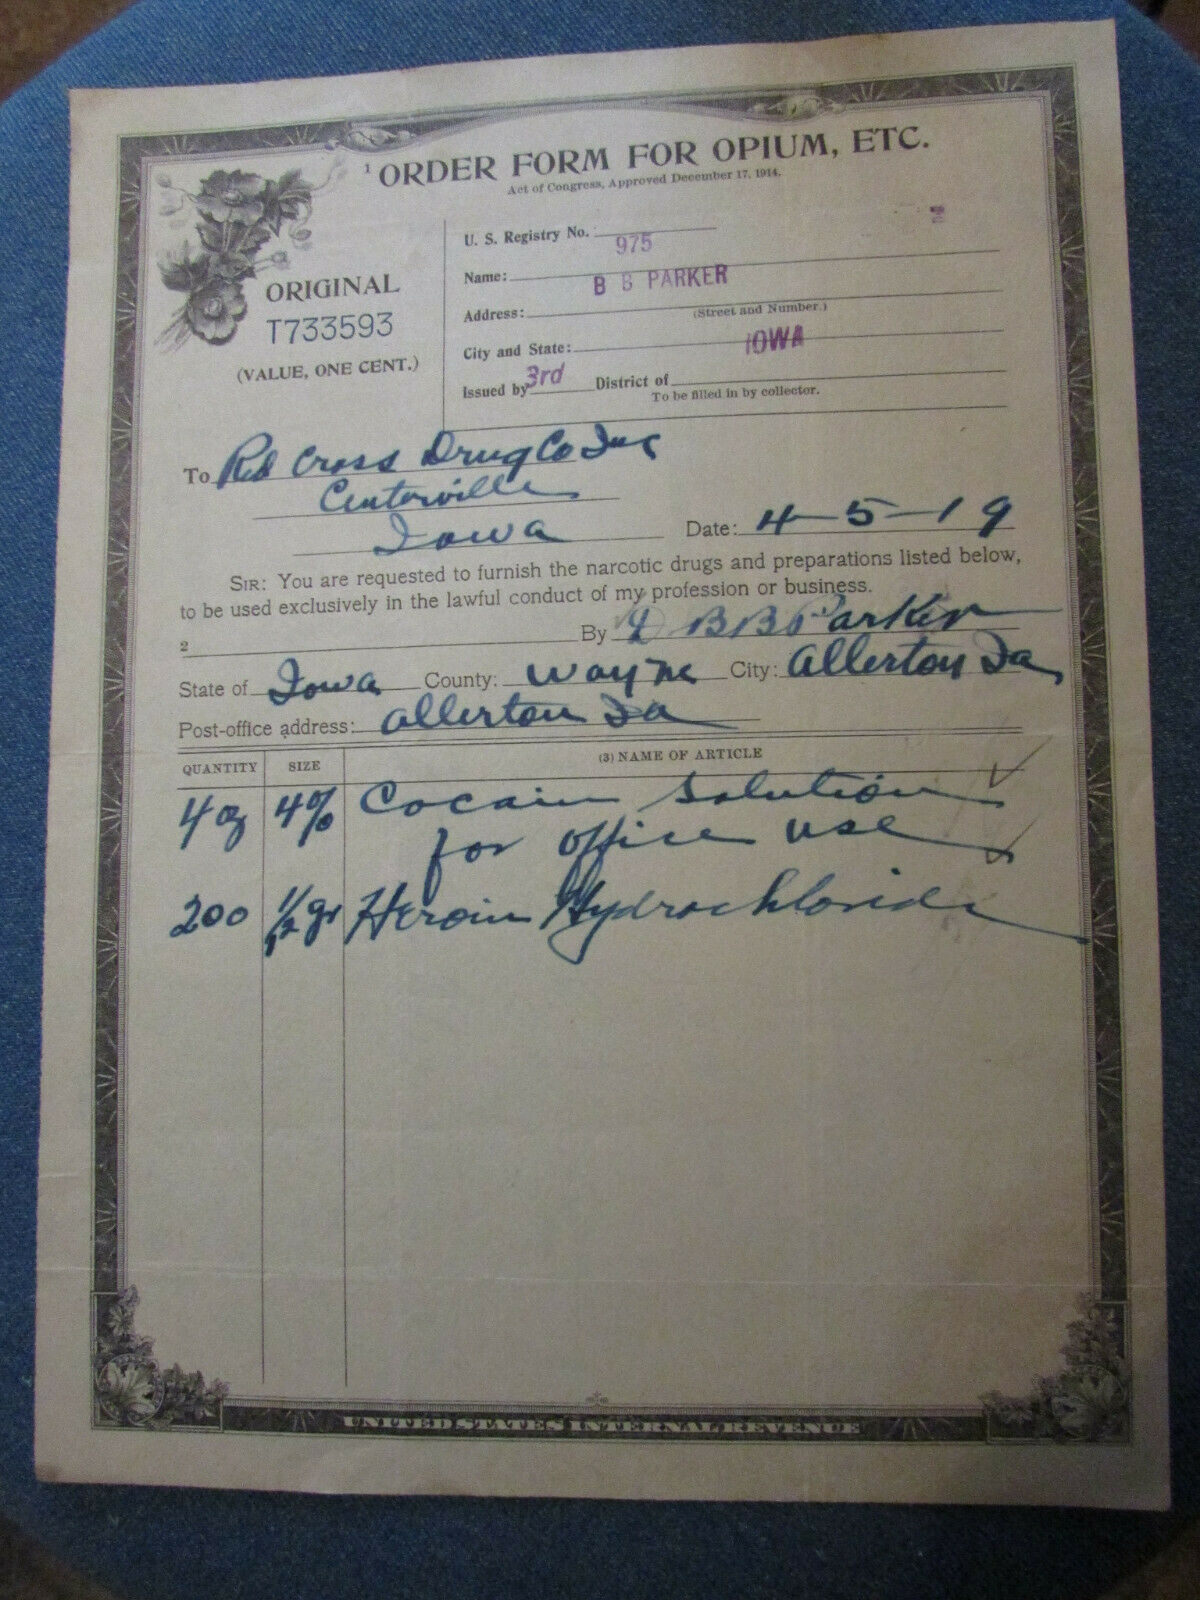 ¹ ORDER FORM FOR OPIUM, ETC.
Act of Congress, Approved December 17, 1914.
ORIGINAL
T733593
(VALUE, ONE CENT.)
U. S. Registry No. 975
Name: B B PARKER
Address:
(Street and Number.)
City and State: IOWA
Issued by 3rd District of
To be filled in by collector.
To Red Cross Drug Co Inc
Centerville
Iowa
Date: 4-5-19
SIR: You are requested to furnish the narcotic drugs and preparations listed below,
to be used exclusively in the lawful conduct of my profession or business.
2 By B B Parker
State of Iowa County: Wayne City: Allerton Ia
Post-office address: Allerton Ia
QUANTITY SIZE (3) NAME OF ARTICLE
4 oz 4% Cocain Solution
for office use
200 1/2 gr Heroin Hydrochloride
UNITED STATES INTERNAL REVENUE